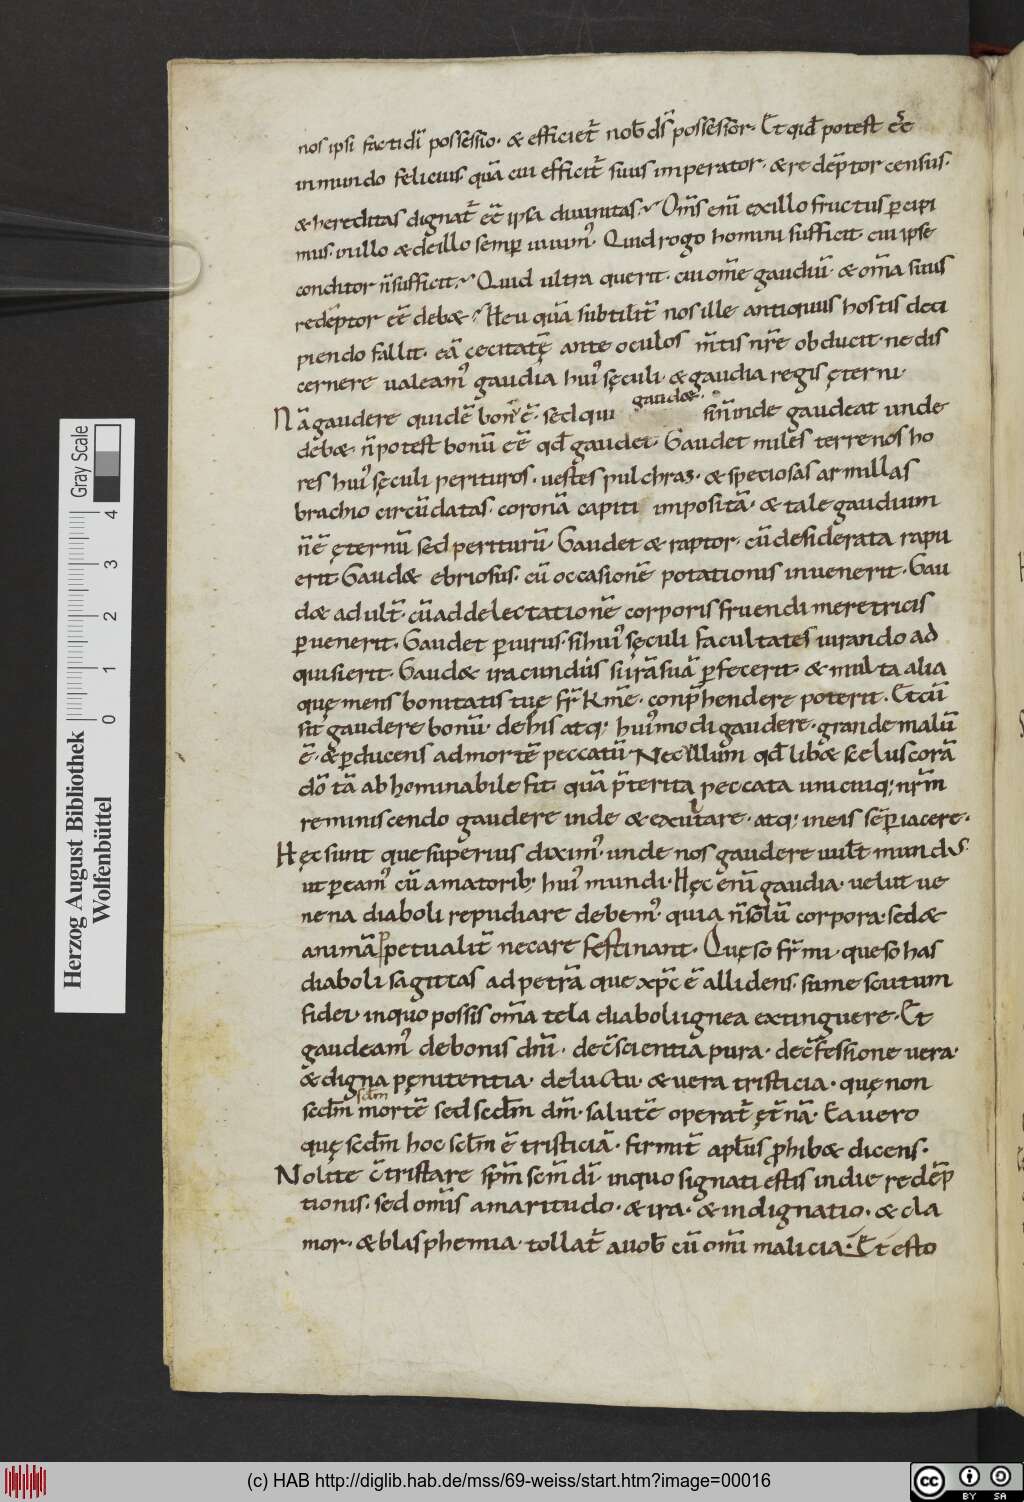 nos ipsi facti di̅ possessio· & efficiet̅ nob̅ ds̅ possessor· Et qid̅ potest ee̅
in mundo felicius· qua̅ cui efficit̅ suus imperator· & rede̅ptor census·
& hereditas dignat̅ ee̅ ipsa diuinitas· Om̅s eni̅ ex illo fructus p̲cipi
mus· in illo & de illo semp̲ uiuim᾿· Quid rogo homini sufficit cui ipse
conditor n̅ sufficit· Quid ultra querit· cui om̅e gaudiu̅· & om̅a suus
rede̅ptor ee̅ deb&· Heu qua̅ subtilit̅ nos ille antiquus hostis deci
piendo fallit· ea̅ cecitate̅ ante oculos m̅tis nr̅e obducit· ne dis
cernere ualeam᾿ gaudia hui᾿ sęculi· & gaudia regis ęterni·
Na̅ gaudere quide̅ bonu̅ e̅· sed qui gaud&· si n̅ inde gaudeat unde
deb&· n̅ potest bonu̅ ee̅ qd̅ gaudet· Gaudet miles terrenos ho
res hui᾿ sęculi perituros· uestes pulchras· & speciosas armillas
brachio circu̅datas· corona̅ capiti imposita̅· & tale gaudium
n̅ e̅ ęternu̅ sed perituru̅· Gaudet & raptor· cu̅ desiderata rapu
erit· Gaud& ebriosus· cu̅ occasione̅ potationis inuenerit· Gau
d& adult̅· cu̅ ad delectatione̅ corporis fruendi meretricis
p̲uenerit· Gaudet p̲iurus· si hui᾿ sęculi facultates iurando ad
quisierit· Gaud& iracundus si ira̅ sua̅ p̲fecerit· & multa alia
quę mens bonitatis tuę fr̅ k̅me· conp̅hendere poterit· Et cu̅
sit gaudere bonu̅· de his atq; hui᾿modi gaudere· grande malu̅
e̅· & p̲ducens ad morte̅ peccatu̅· Nec illum qd̅ lib& scelus cora̅
do̅ ta̅ abhominabile fit· qua̅ p̅terita peccata unicuiq; nr̅m
reminiscendo gaudere inde & exultare· atq; in eis semp̲ iacere·
Hęc sunt que superius dixim᾿· unde nos gaudere uult mundus
ut p̲eam᾿ cu̅ amatorib; hui᾿ mundi· Hęc eni̅ gaudia· uelut ue
nena diaboli repudiare debem᾿· quia n̅ solu̅ corpora· sed &
anima̅ p̲petualit̅ necare festinant· Quęso fr̅ mi· queso has
diaboli sagittas ad petra̅ que xp̅c e̅ allidens· sume scutum
fidei· in quo possis om̅a tela diaboli ignea extinguere· Et
gaudeam᾿ de bonis dn̅i· de c̅scientia pura· de c̅fessione uera·
& digna pęnitentia· de luctu· & uera tristicia· quę non
scdm̅
scdm̅ morte̅ sed scdm̅ dm̅· salute̅ operat̅ ęt̅na̅· Ea uero
quę scdm̅ hoc sclm̅ e̅ tristicia̅· firmit̅ apl̅us p̲hib& dicens·
Nolite c̅tristare sp̅m sc̅m di̅· in quo signati estis in die rede̅p
tionis· sed om̅is amaritudo· & ira· & indignatio· & cla
mor· & blasphemia· tollat̅ a uob̅ cu̅ om̅i malicia· Et esto
Gray Scale
0 1 2 3 4
Herzog August Bibliothek
Wolfenbüttel
(c) HAB http://diglib.hab.de/mss/69-weiss/start.htm?image=00016
cc BY SA